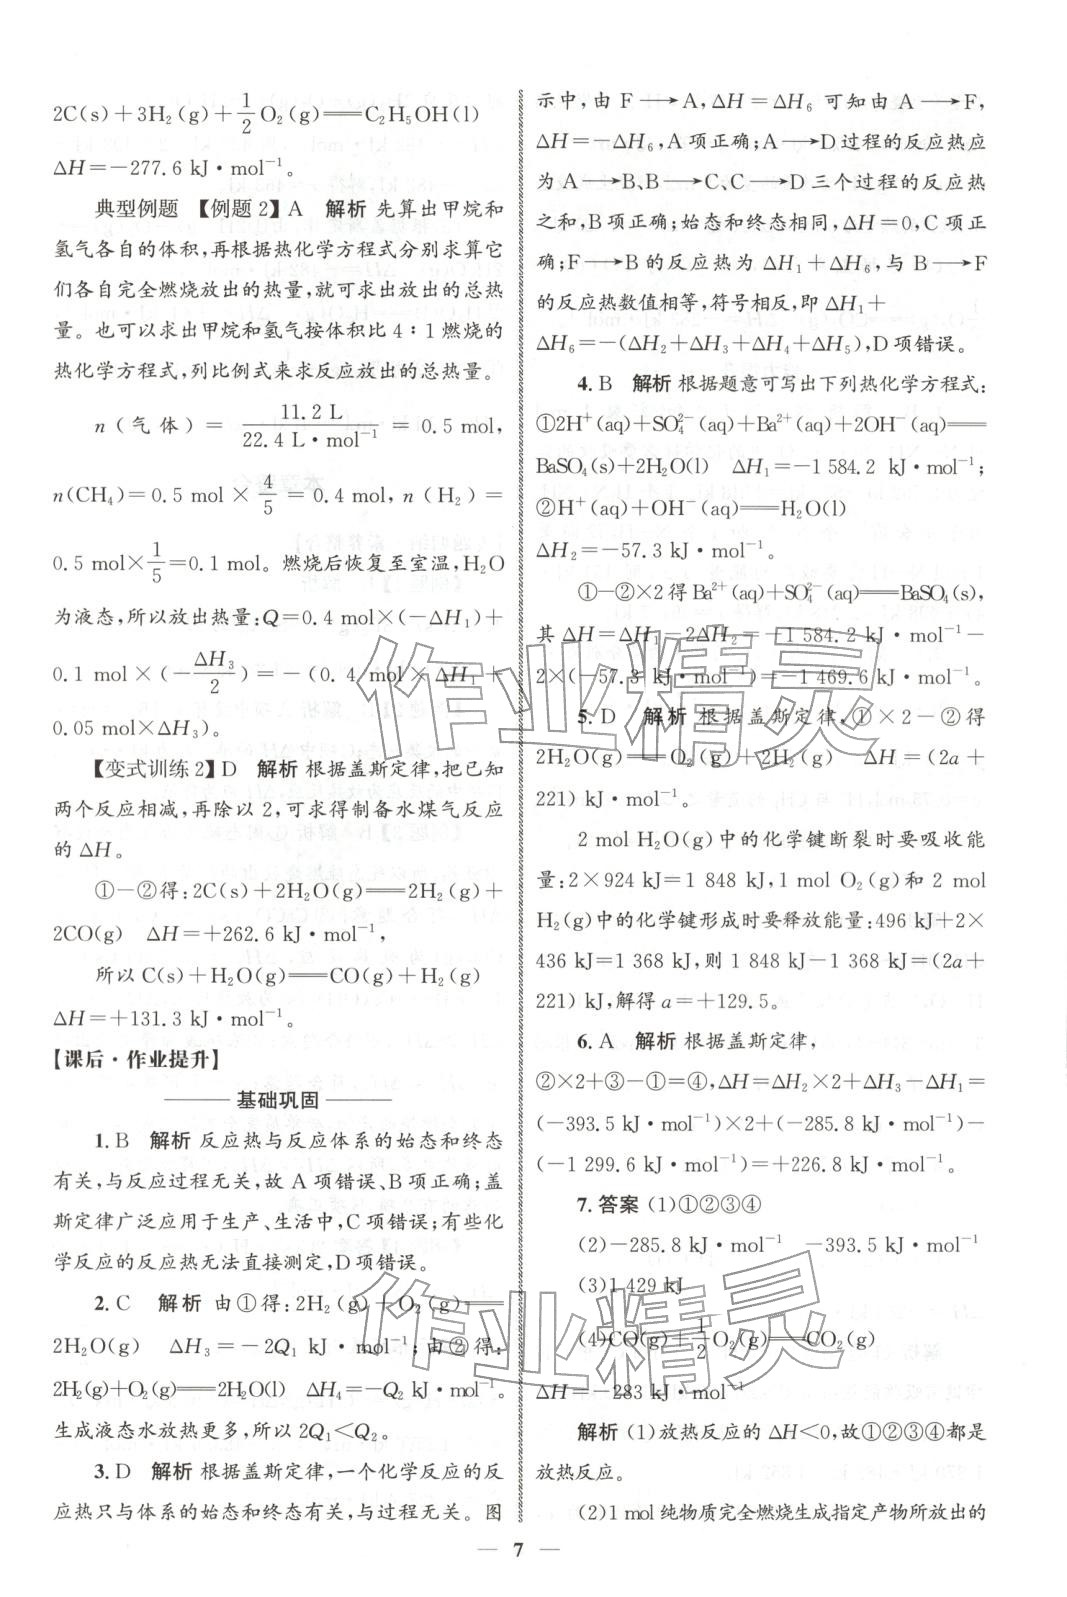 2C(s)+3H₂(g)+1/2O₂(g)══C₂H₅OH(l)
ΔH=−277.6 kJ·mol⁻¹。
典型例题 【例题2】A 解析 先算出甲烷和
氢气各自的体积,再根据热化学方程式分别求算它
们各自完全燃烧放出的热量,就可求出放出的总热
量。也可以求出甲烷和氢气按体积比4∶1燃烧的
热化学方程式,列比例式来求反应放出的总热量。
n(气体)=11.2 L/22.4 L·mol⁻¹=0.5 mol,
n(CH₄)=0.5 mol×4/5=0.4 mol,n(H₂)=
0.5 mol×1/5=0.1 mol。燃烧后恢复至室温,H₂O
为液态,所以放出热量:Q=0.4 mol×(−ΔH₁)+
0.1 mol×(−ΔH₃/2)=−(0.4 mol×ΔH₁+
0.05 mol×ΔH₃)。
【变式训练2】D 解析 根据盖斯定律,把已知
两个反应相减,再除以2,可求得制备水煤气反应
的ΔH。
①−②得:2C(s)+2H₂O(g)══2H₂(g)+
2CO(g) ΔH=+262.6 kJ·mol⁻¹,
所以C(s)+H₂O(g)══CO(g)+H₂(g)
ΔH=+131.3 kJ·mol⁻¹。
【课后·作业提升】
基础巩固
1.B 解析 反应热与反应体系的始态和终态
有关,与反应过程无关,故A项错误、B项正确;盖
斯定律广泛应用于生产、生活中,C项错误;有些化
学反应的反应热无法直接测定,D项错误。
2.C 解析 由①得:2H₂(g)+O₂(g)══
2H₂O(g) ΔH₃=−2Q₁ kJ·mol⁻¹;由②得:
2H₂(g)+O₂(g)══2H₂O(l) ΔH₄=−Q₂ kJ·mol⁻¹。
生成液态水放热更多,所以2Q₁<Q₂。
3.D 解析 根据盖斯定律,一个化学反应的反
应热只与体系的始态和终态有关,与过程无关。图
示中,由F⟶A,ΔH=ΔH₆可知由A⟶F,
ΔH=−ΔH₆,A项正确;A⟶D过程的反应热应
为A⟶B、B⟶C、C⟶D三个过程的反应热
之和,B项正确;始态和终态相同,ΔH=0,C项正
确;F⟶B的反应热为ΔH₁+ΔH₆,与B⟶F
的反应热数值相等,符号相反,即ΔH₁+
ΔH₆=−(ΔH₂+ΔH₃+ΔH₄+ΔH₅),D项错误。
4.B 解析 根据题意可写出下列热化学方程式:
①2H⁺(aq)+SO₄²⁻(aq)+Ba²⁺(aq)+2OH⁻(aq)══
BaSO₄(s)+2H₂O(l) ΔH₁=−1 584.2 kJ·mol⁻¹;
②H⁺(aq)+OH⁻(aq)══H₂O(l)
ΔH₂=−57.3 kJ·mol⁻¹。
①−②×2得Ba²⁺(aq)+SO₄²⁻(aq)══BaSO₄(s),
其ΔH=ΔH₁−2ΔH₂=−1 584.2 kJ·mol⁻¹−
2×(−57.3 kJ·mol⁻¹)=−1 469.6 kJ·mol⁻¹。
5.D 解析 根据盖斯定律,①×2−②得
2H₂O(g)══O₂(g)+2H₂(g) ΔH=(2a+
221) kJ·mol⁻¹。
2 mol H₂O(g)中的化学键断裂时要吸收能
量:2×924 kJ=1 848 kJ,1 mol O₂(g)和2 mol
H₂(g)中的化学键形成时要释放能量:496 kJ+2×
436 kJ=1 368 kJ,则1 848 kJ−1 368 kJ=(2a+
221) kJ,解得a=+129.5。
6.A 解析 根据盖斯定律,
②×2+③−①=④,ΔH=ΔH₂×2+ΔH₃−ΔH₁=
(−393.5 kJ·mol⁻¹)×2+(−285.8 kJ·mol⁻¹)−
(−1 299.6 kJ·mol⁻¹)=+226.8 kJ·mol⁻¹。
7.答案 (1)①②③④
(2)−285.8 kJ·mol⁻¹ −393.5 kJ·mol⁻¹
(3)1 429 kJ
(4)CO(g)+1/2O₂(g)══CO₂(g)
ΔH=−283 kJ·mol⁻¹
解析 (1)放热反应的ΔH<0,故①②③④都是
放热反应。
(2)1 mol纯物质完全燃烧生成指定产物所放出的
— 7 —
作业精灵
作业精灵